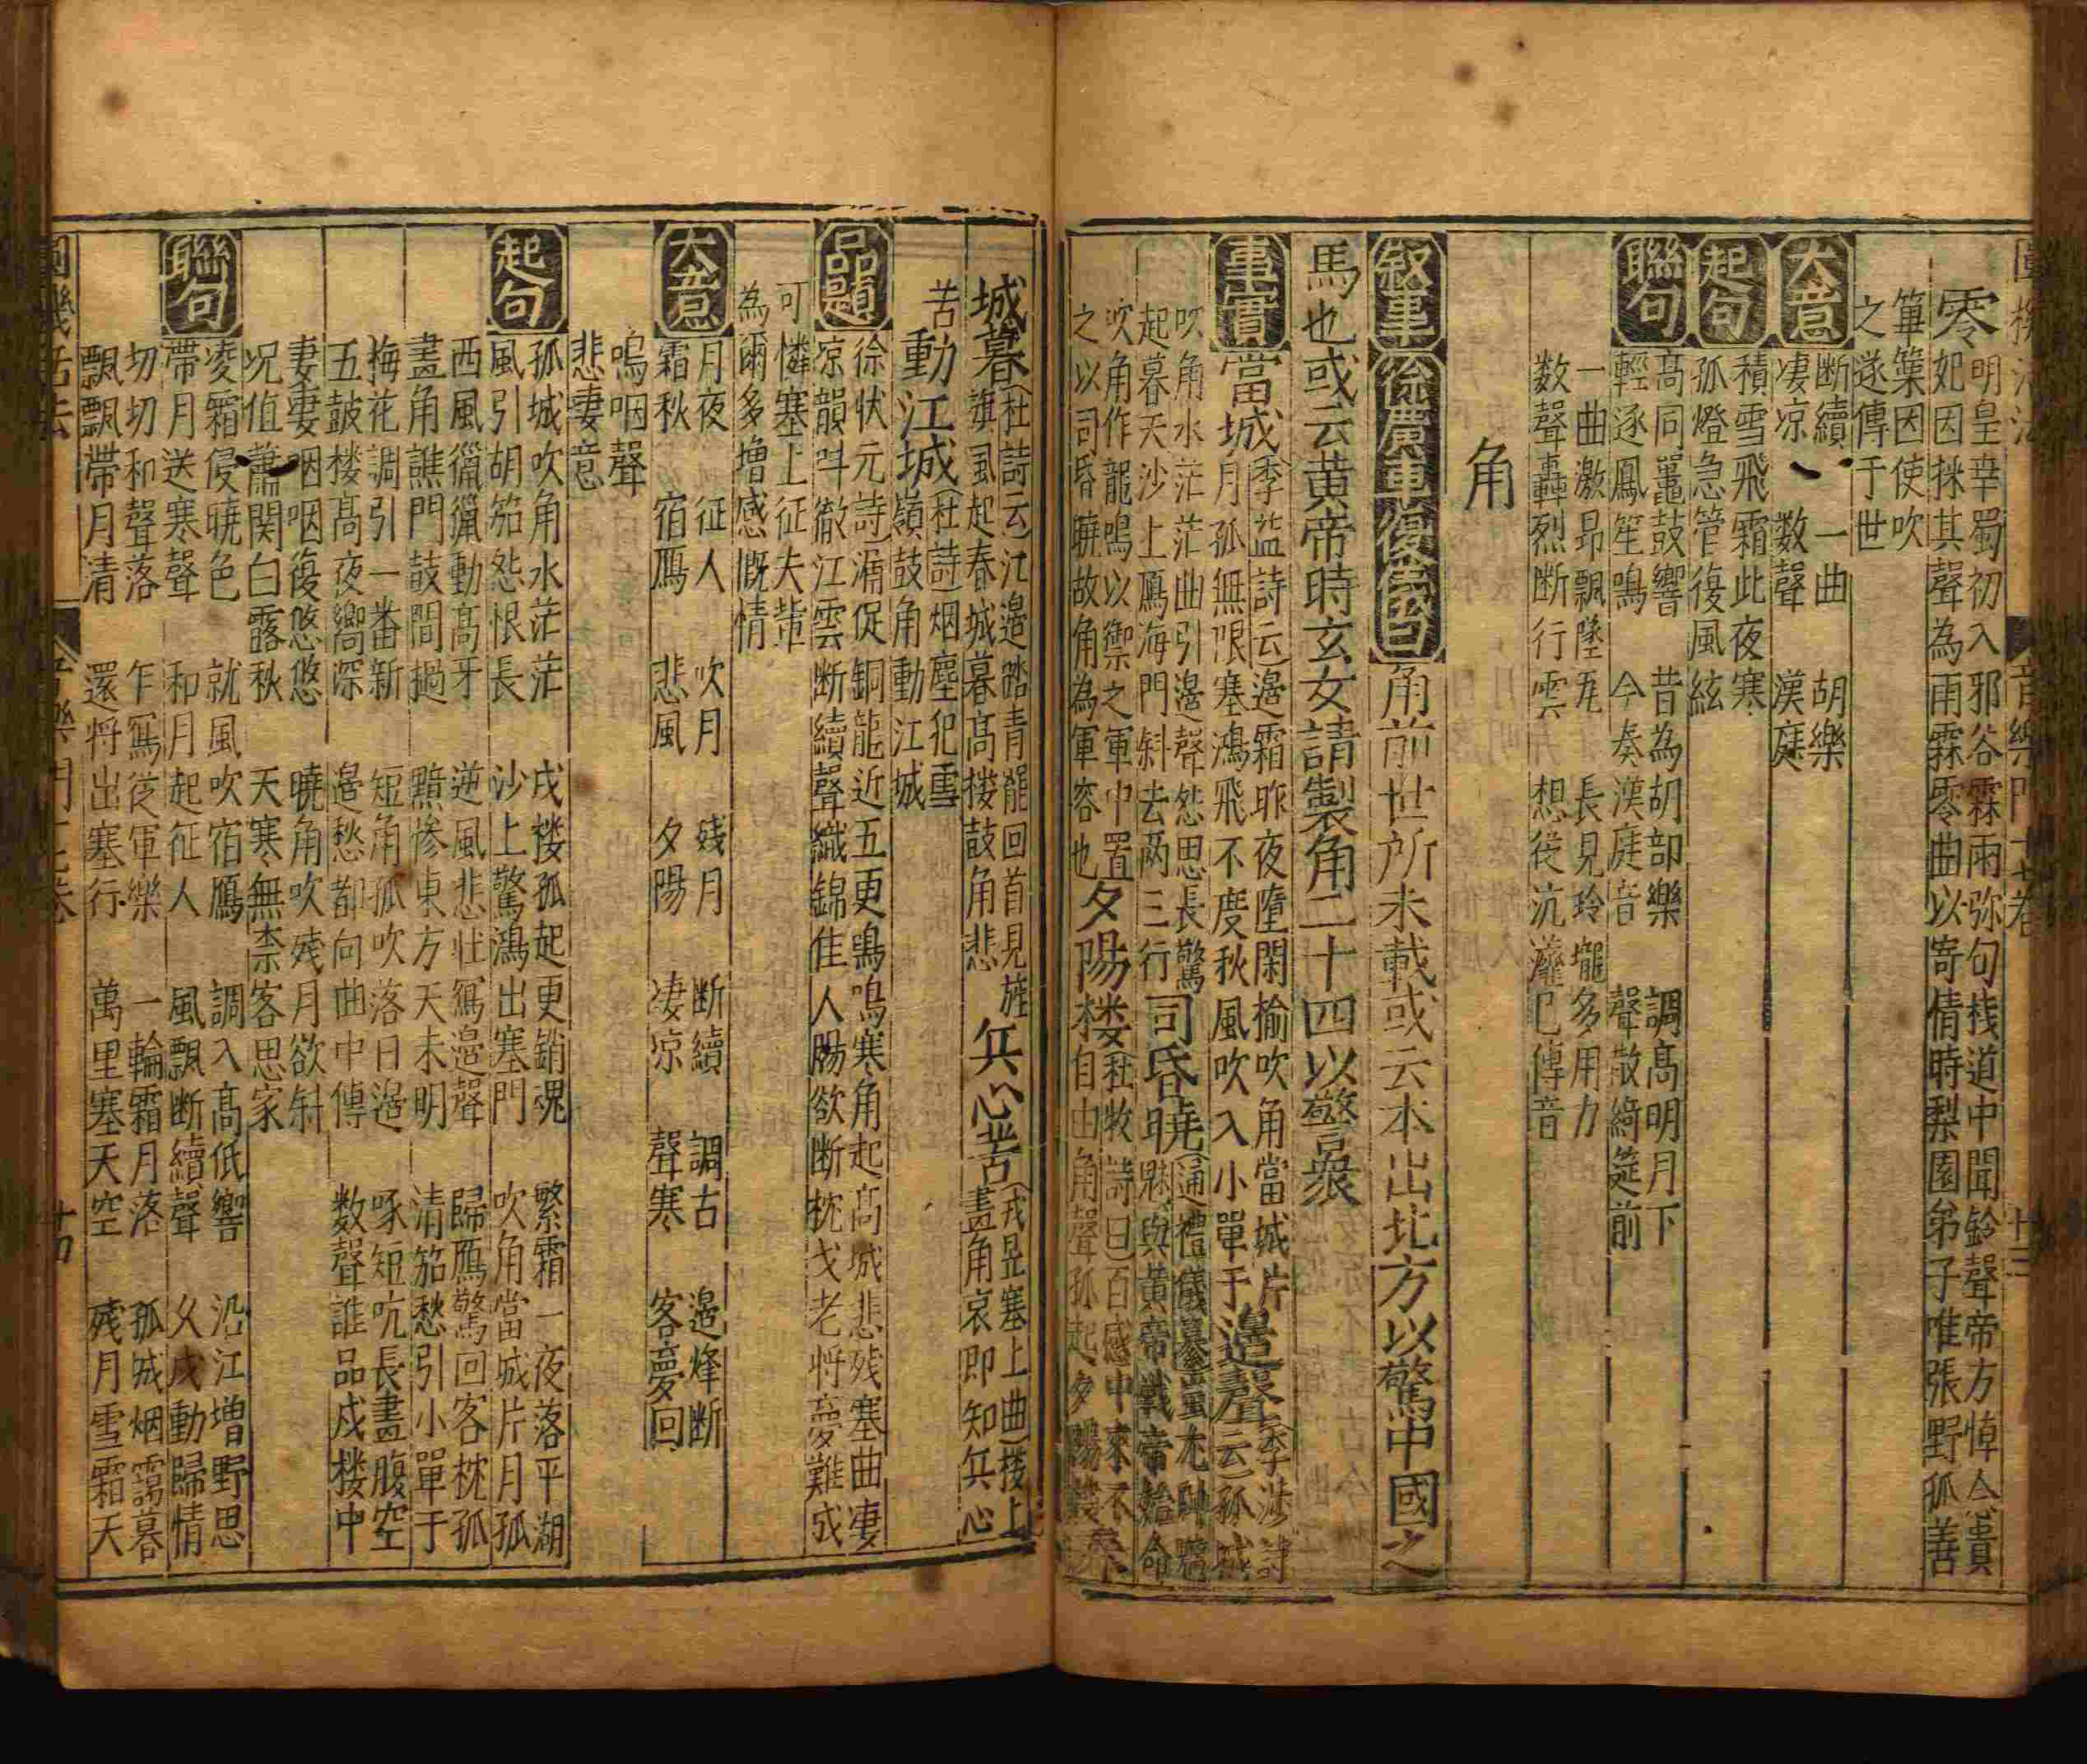 零
明皇幸蜀初入邪谷霖雨弥旬棧道中聞鈴聲帝方悼念貴
妃因採其聲為雨霖零曲以寄情時梨園弟子唯張野狐善
篳篥因使吹
之遂傳于世
大意
断續 一曲 胡樂
凄凉 数聲 漢庭
起句
積雪飛霜此夜寒
孤燈急管復風絃
聯句
高同鼉鼓響 昔為胡部樂 調高明月下
輕逐鳳笙鳴 今奏漢庭音 聲散綺筵前
一曲激昂飄墜瓦 長見玲瓏多用力
数聲轟烈断行雲 想從沆瀣已傳音
角
叙事 徐廣車僕儀曰 角前世所未載或云本出北方以驚中國之
馬也或云黄帝時玄女請製角二十四以警衆
事實 當城
季益詩云邉霜昨夜墮関榆吹角當城片
月孤無限塞鴻飛不度秋風吹入小單于
邉聲
季渉詩云孤城
吹角水茫茫曲引邉聲怨思長驚
起暮天沙上鴈海門斜去两三行
司昏曉
通禮儀纂蚩尤帥魑
魅與黄帝戰帝始命
吹角作龍鳴以禦之軍中置
之以司昏曉故角為軍容也
夕陽楼
杜牧詩曰百感中來不
自由角聲孤起夕陽楼
城暮
杜詩云江邉踏青罷回首見旌
旗風起春城暮高楼鼓角悲
兵心苦
戎昱塞上曲楼上
畫角哀即知兵心
苦
動江城
杜詩烟塵犯雪
嶺鼓角動江城
品題
徐状元詩漏促銅龍近五更鳴鳴寒角起高城悲残塞曲凄
凉韻呌徹江雲断續聲織錦佳人腸欲断枕戈老将夢難成
可憐塞上征夫輩
為爾多増感慨情
大意
月夜 征人 吹月 残月 断續 調古 邉烽断
霜秋 宿鴈 悲風 夕陽 凄凉 聲寒 客夢回
嗚咽聲
悲凄意
起句
孤城吹角水茫茫 戍楼孤起更銷魂 繁霜一夜落平湖
風引胡笳怨恨長 沙上驚鴻出塞門 吹角當城片月孤
西風獵獵動高牙 逆風悲壮冩邉聲 歸鴈驚回客枕孤
畫角譙門鼓間撾 黯惨東方天未明 清笳愁引小單于
梅花調引一番新 短角孤吹落日邉 啄短吭長畫腹空
五鼓楼高夜嚮深 邉愁都向曲中傳 数聲誰品戍楼中
凄凄咽咽復悠悠 曉角吹残月欲斜
况值蕭関白露秋 天寒無柰客思家
聯句
凌霜侵曉色 就風吹宿鴈 調入高低響 沿江増野思
帶月送寒聲 和月起征人 風飄断續聲 久戍動歸情
切切和聲落 乍冩從軍樂 一輪霜月落 孤城烟靄暮
飄飄帶月清 還将出塞行 萬里塞天空 残月雪霜天